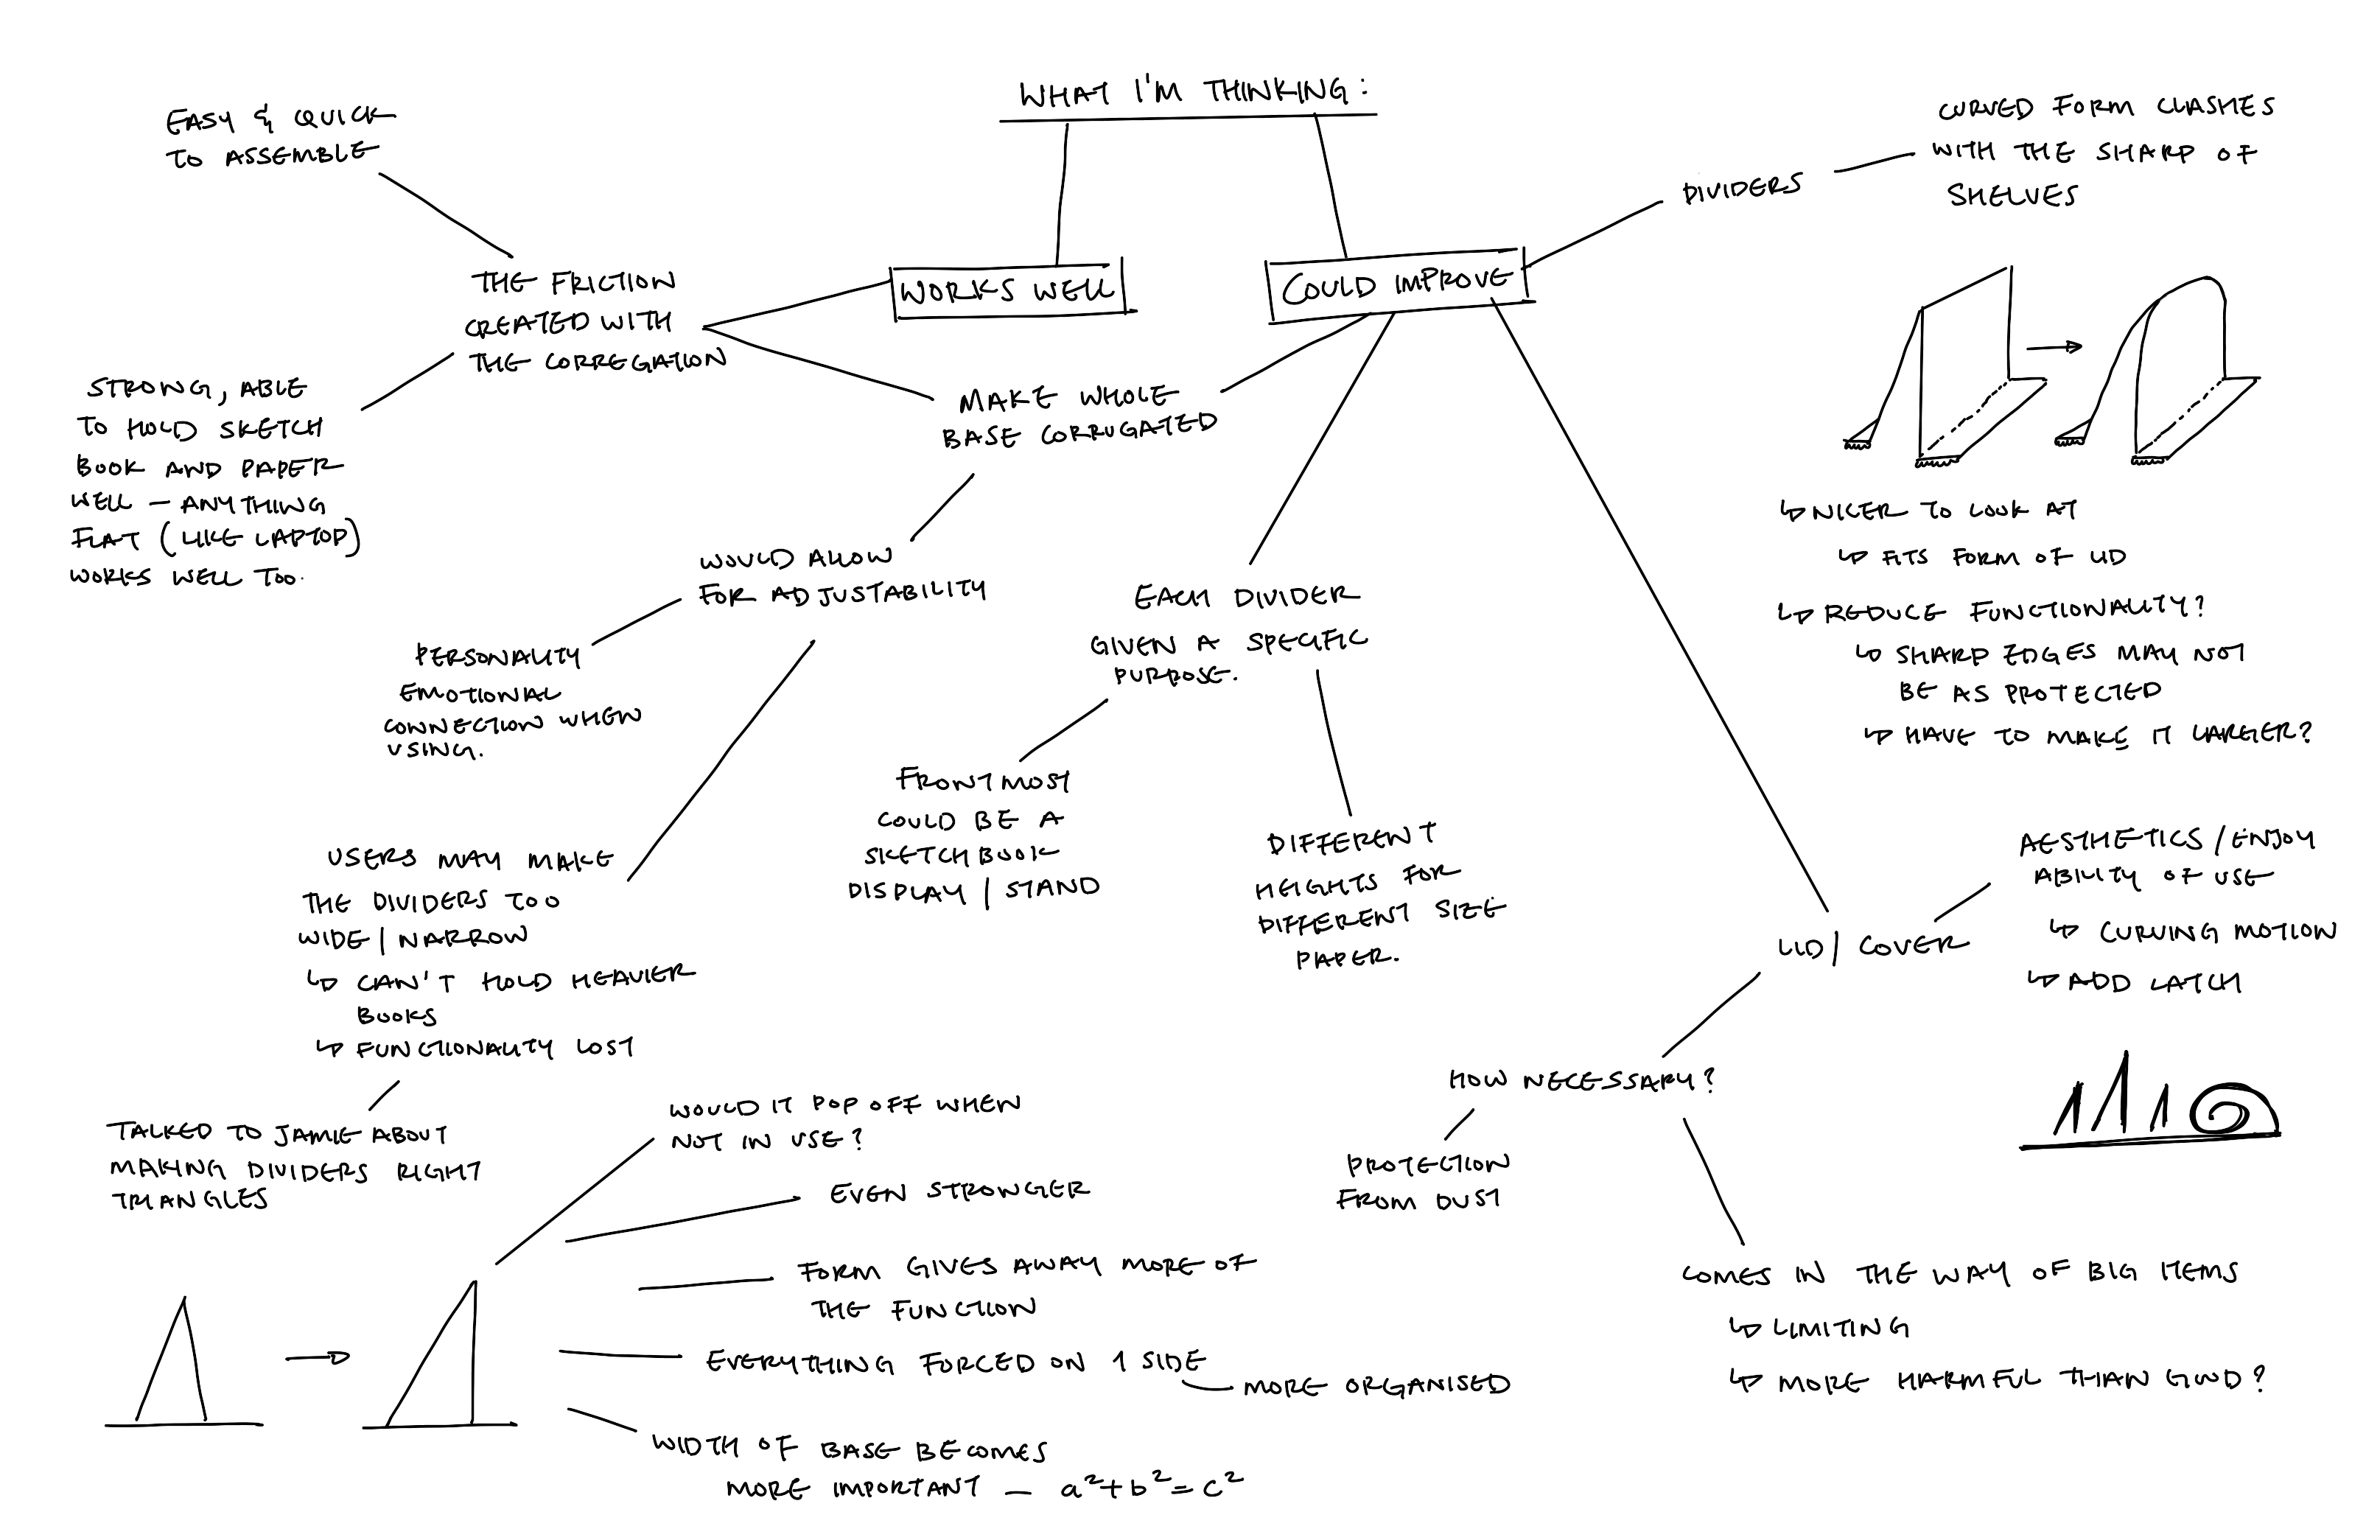 WHAT I'M THINKING:
EASY & QUICK
TO ASSEMBLE
THE FRICTION
CREATED WITH
THE CORREGATION
STRONG, ABLE
TO HOLD SKETCH
BOOK AND PAPER
WELL – ANYTHING
FLAT (LIKE LAPTOP)
WORKS WELL TOO.
WORKS WELL
COULD IMPROVE
MAKE WHOLE
BASE CORRUGATED
WOULD ALLOW
FOR ADJUSTABILITY
PERSONALITY
EMOTIONAL
CONNECTION WHEN
USING.
USERS MAY MAKE
THE DIVIDERS TOO
WIDE | NARROW
↳ CAN'T HOLD HEAVIER
BOOKS
↳ FUNCTIONALITY LOST
TALKED TO JAMIE ABOUT
MAKING DIVIDERS RIGHT
TRIANGLES
WOULD IT POP OFF WHEN
NOT IN USE?
EVEN STRONGER
FORM GIVES AWAY MORE OF
THE FUNCTION
EVERYTHING FORCED ON 1 SIDE
MORE ORGANISED
WIDTH OF BASE BECOMES
MORE IMPORTANT – a²+b²=c²
EACH DIVIDER
GIVEN A SPECIFIC
PURPOSE.
FRONTMOST
COULD BE A
SKETCHBOOK
DISPLAY | STAND
DIFFERENT
HEIGHTS FOR
DIFFERENT SIZE
PAPER.
DIVIDERS
CURVED FORM CLASHES
WITH THE SHARP OF
SHELVES
↳ NICER TO LOOK AT
↳ FITS FORM OF LID
↳ REDUCE FUNCTIONALITY?
↳ SHARP EDGES MAY NOT
BE AS PROTECTED
↳ HAVE TO MAKE IT LARGER?
LID | COVER
AESTHETICS / ENJOY
ABILITY OF USE
↳ CURVING MOTION
↳ ADD LATCH
HOW NECESSARY?
PROTECTION
FROM DUST
COMES IN THE WAY OF BIG ITEMS
↳ LIMITING
↳ MORE HARMFUL THAN GOOD?